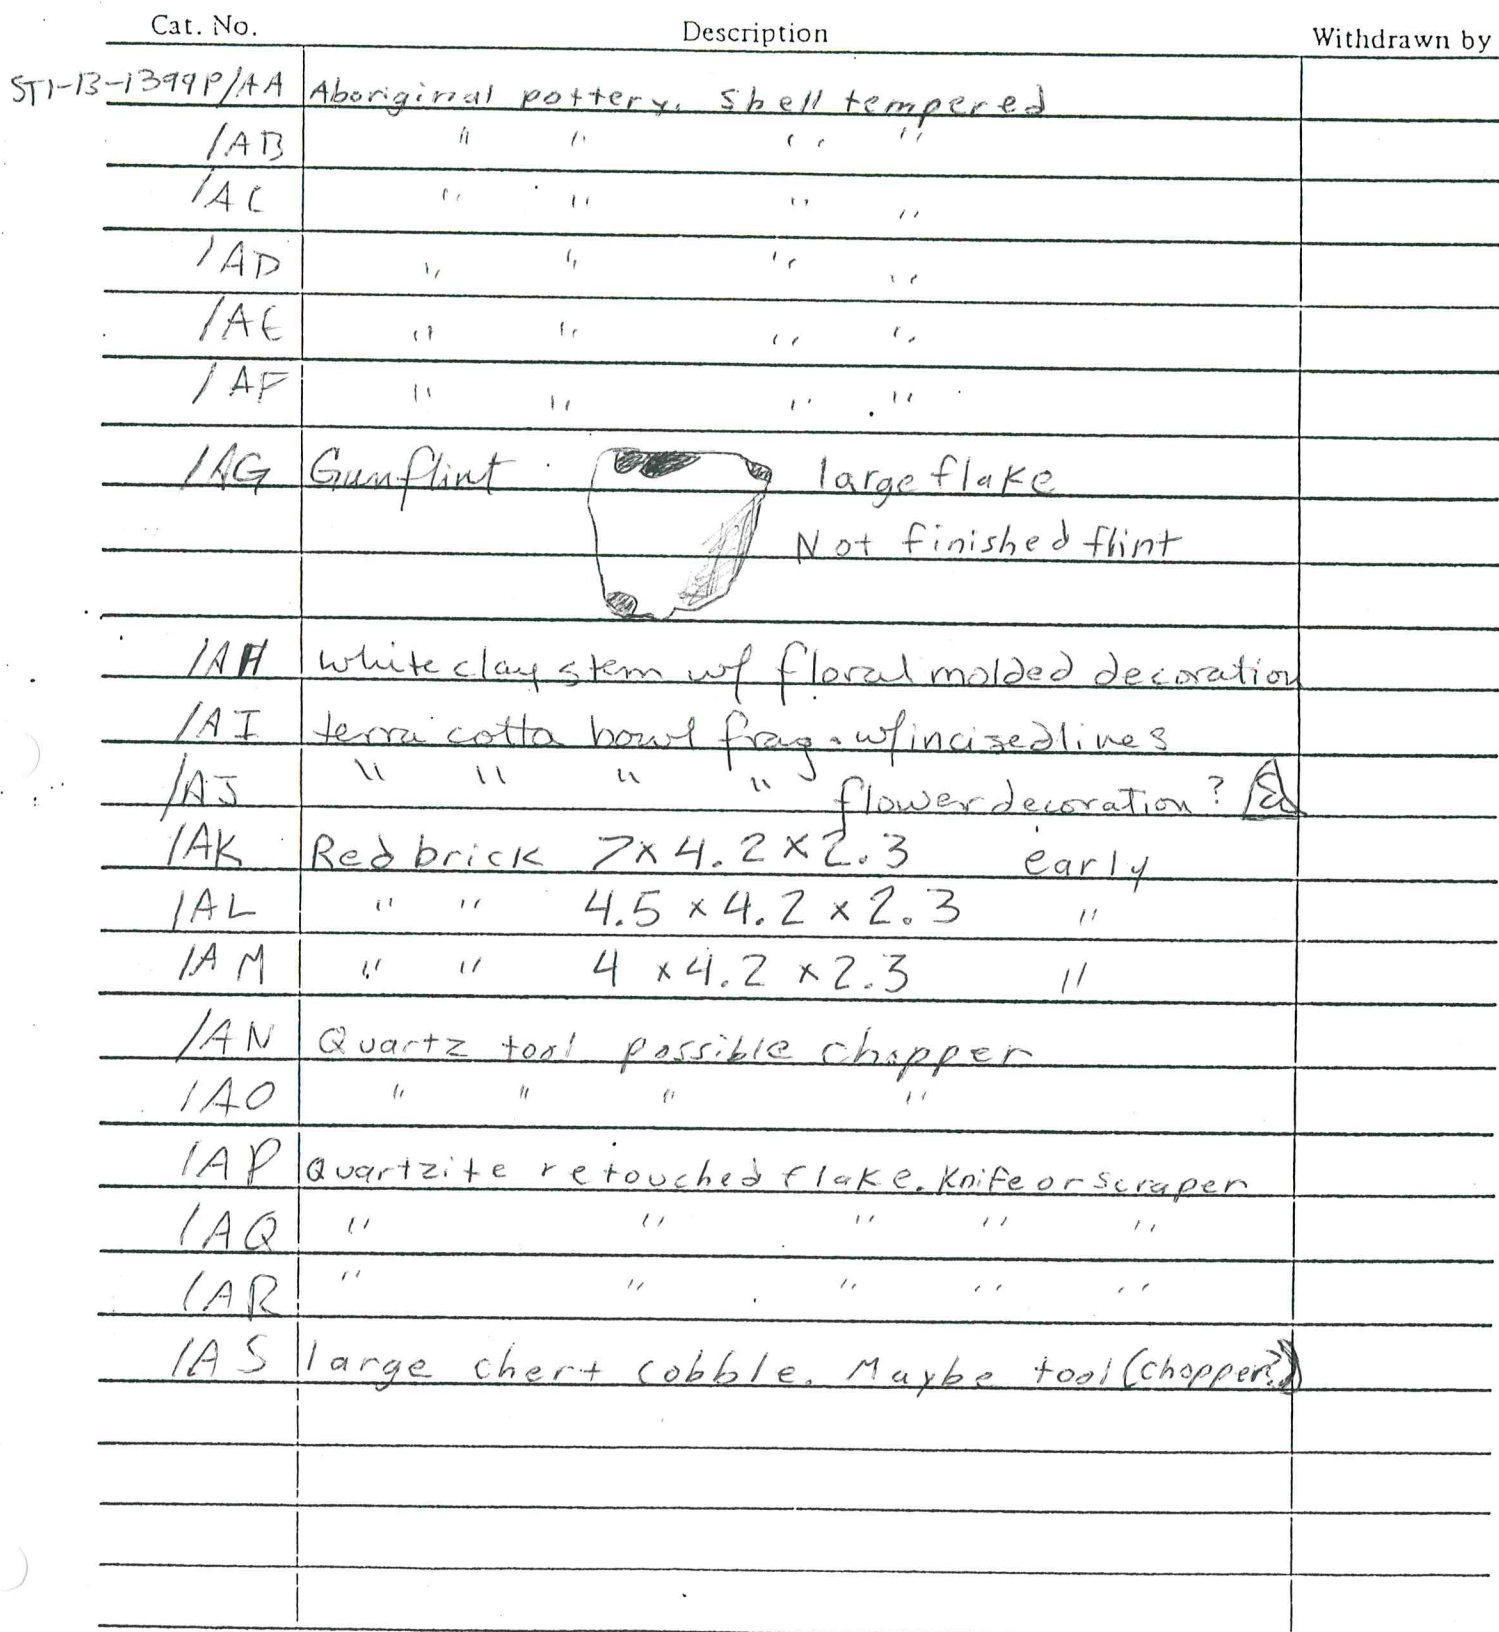 Cat. No. Description Withdrawn by
ST1-13-1399P/AA Aboriginal pottery. Shell tempered
/AB " " " "
/AC " " " "
/AD " " " "
/AE " " " "
/AF " " " "
/AG Gunflint large flake
Not finished flint
/AH white clay stem w/ floral molded decoration
/AI terra cotta bowl frag. w/incised lines
/AJ " " " " flower decoration?
/AK Red brick 7x4.2x2.3 early
/AL " " 4.5 x 4.2 x 2.3 "
/AM " " 4 x 4.2 x 2.3 "
/AN Quartz tool possible chopper
/AO " " " "
/AP Quartzite retouched flake. Knife or scraper
/AQ " " " " "
/AR " " " " "
/AS large chert cobble. Maybe tool (chopper?)